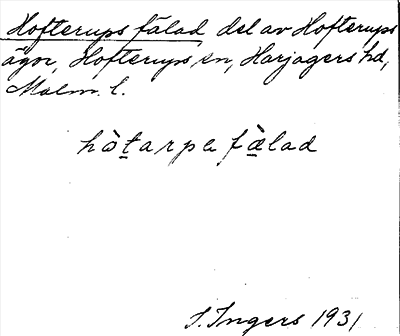 Hofterups fälad del av Hofterups
ägor, Hofterups sn, Harjagers hd,
Malm. l.
hòtarpe fälad
I. Ingers 1931